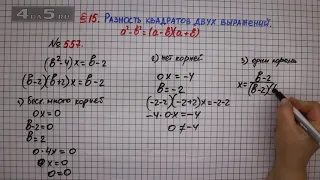 4GS.RU
§15. Разность квадратов двух выражений.
a²-b²=(a-b)(a+b)
№ 557.
(b²-4)x=b-2
(b-2)(b+2)x=b-2
1) беск. много корней
0x=0
b-2=0
b=2
0·4x=0
0x=0
0=0
2) нет корней
0x=-4
b=-2
(-2-2)(-2+2)x=-2-2
-4·0x=-4
0≠-4
3) один корень
x= b-2
(b-2)(